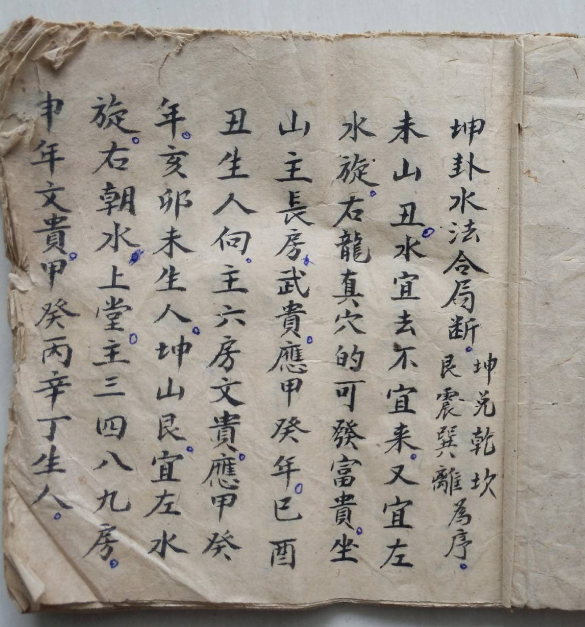 坤卦水法合局断。坤兑乾坎艮震巽離為序。
未山丑。水宜去不宜来。又宜左
水旋。右龍真穴的可發富貴。坐
山主長房。武貴。應甲癸年。巳酉
丑生人。向。主六房文貴。應甲癸
年。亥卯未生人。坤山艮。宜左水
旋。右朝水。上堂。主三四八九房。
申年文貴。甲癸丙辛丁生人。